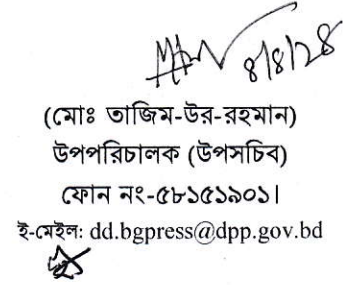 ৪/৪/২৪
(মোঃ তাজিম-উর-রহমান)
উপপরিচালক (উপসচিব)
ফোন নং-৫৮১৫১৯০১।
ই-মেইল: dd.bgpress@dpp.gov.bd